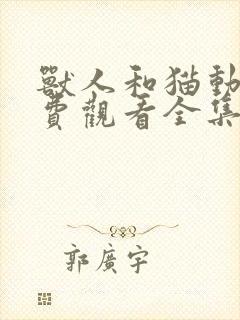 獸人和猫動
費觀看全集
郭廣宇